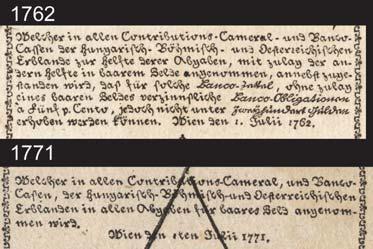 1762
Welcher in allen Contributions-Cameral- und Banco-
Cassen der Hungarisch- Böhmisch- und Oesterreichischen
Erblande zur helfte derer Abgaben, mit zulag der an-
dern helfte in baarem Gelde angenommen, annebst zuge-
standen wird, daß für solche Banco-Zettel, ohne zulag
eines baaren Geldes verzinnsliche Banco-Obligationen
a Fünf p. Cento, jedoch nicht unter Zweyhundert Gulden
erhoben werden können. Wien den 1. Julii 1762.
1771
Welcher in allen Contributions-Cameral, und Banco-
Cassen, der Hungarisch-Böhmisch-und Oesterreichischen
Erblanden in allen Abgaben für baares Geld angenom-
men wird.
Wien den 1ten Julii 1771.